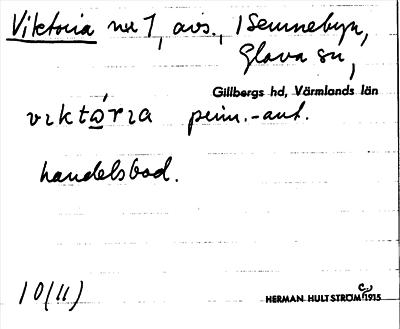 Viktoria nr 1, avs., 1 Semnebyn,
Glava sn,
Gillbergs hd, Värmlands län
vɩktώ̲rɩa pein.-aut.
handelsbod.
10(11)
HERMAN HULTSTRÖM 1915